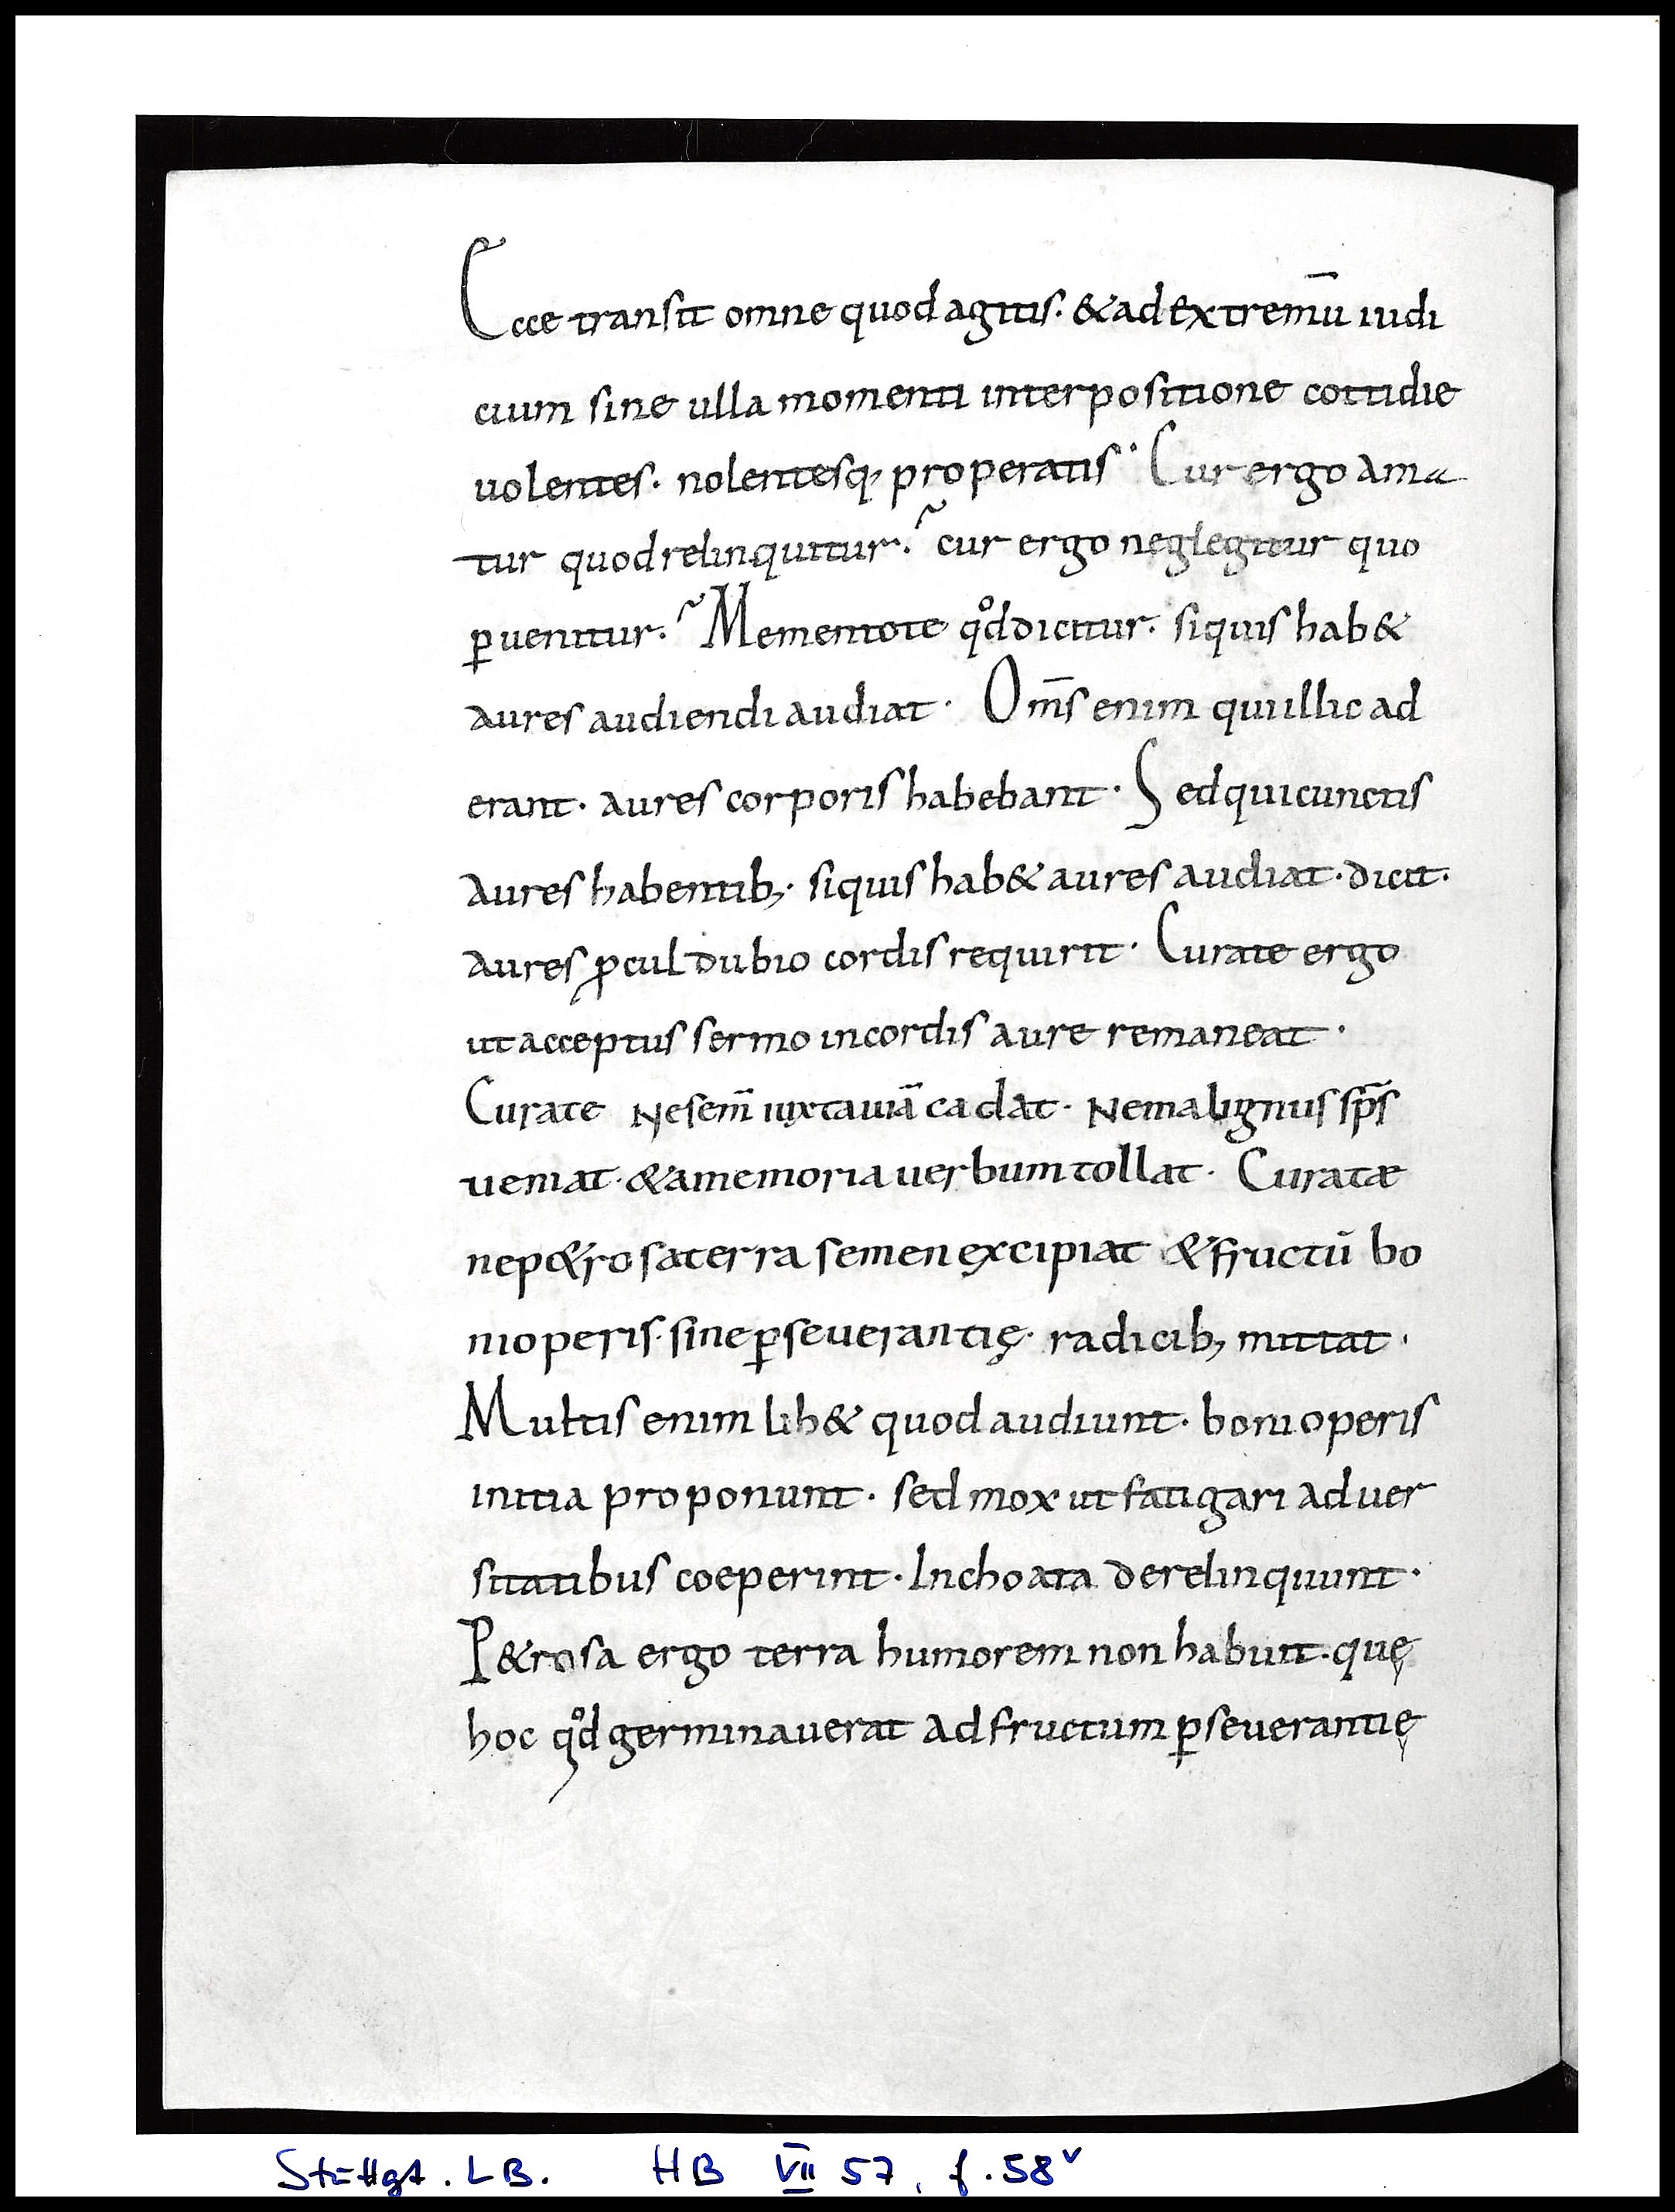 Ecce transit omne quod agitis. & ad extremū iudi
cium sine ulla momenti interpositione cottidie
uolentes. nolentesq; properatis. Cur ergo ama
tur quod relinquitur? cur ergo neglegitur quo
ꝑuenitur? Mementote qd̊ dicitur. siquis hab&
aures audiendi audiat. Om̄s enim qui illic ad
erant. aures corporis habebant. Sed qui cunctis
aures habentib;. siquis hab& aures audiat. dicit.
aures ꝓcul dubio cordis requirit. Curate ergo
ut acceptus sermo in cordis aure remaneat.
Curate Ne sem̄ iuxta uiā cadat. Ne malignus sp̄s
ueniat. & a memoria uerbum tollat. Curatæ
ne p&rosa terra semen excipiat & fructū bo
ni operis. sine ꝑseuerantię. radicib; mittat.
Multis enim lib& quod audiunt. boni operis
initia proponunt. sed mox ut fatigari aduer
sitatibus coeperint. Inchoata derelinquunt.
P&rosa ergo terra humorem non habuit. quę
hoc qd̊ germinauerat ad fructum ꝑseuerantię
Stuttgt. LB. HB VII 57, f. 58v